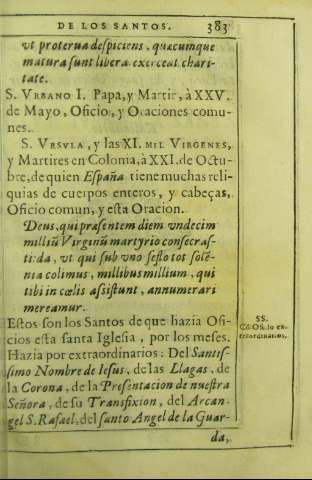 DE LOS SANTOS. 383
ut proterua despiciens, quæcumque
matura sunt libera exerceat chari-
tate.
S. VRBANO I. Papa, y Martir, à XXV.
de Mayo, Oficio, y Oraciones comu-
nes.
S. VRSVLA, y las XI. MIL VIRGENES,
y Martires en Colonia, à XXI. de Octu-
bre, de quien España tiene muchas reli-
quias de cuerpos enteros, y cabeças,
Oficio comun, y esta Oracion.
Deus, qui præsentem diem vndecim
milliũ Virginũ martyrio consecras-
ti: da, vt qui sub vno festo tot solẽ-
nia colimus, millibus millium, qui
tibi in cœlis assistunt, annumerari
mereamur.
Estos son los Santos de que hazia Ofi-
cios esta santa Iglesia, por los meses.
Hazia por extraordinarios: Del Santis-
simo Nombre de Iesus, de las Llagas, de
la Corona, de la Presentacion de nuestra
Señora, de su Transfixion, del Arcan-
gel S. Rafael, del santo Angel de la Guar-
da,
SS.
Cõ Oficio ex-
traordinarios.